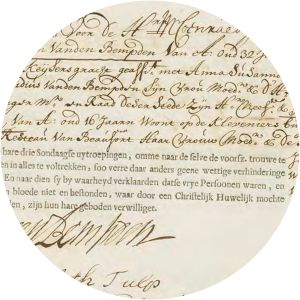 Voor de
Vanden Bempden Van A. Oud 32 J
Keysersgraght geass.t met Anna Susanna
dius Vanden Bempden Zijn
en Raad deser Stede Zijn
Van A. oud 16 Jaaren Wont op de Kloveniers
van Beaufort Haar
hare drie Sondaagse uytroepingen, omme naar de selve de voorsz. trouwe te
en in alles te voltrekken, soo verre daar anders geene wettige verhinderinge
En naar dien sy by waarheyd verklaarden datse vrye Persoonen waren, en
n bloede niet en bestonden, waar door een Christelijk Huwelijk mochte
en, zijn hun hare geboden verwilliget.
Bempden
Tulp